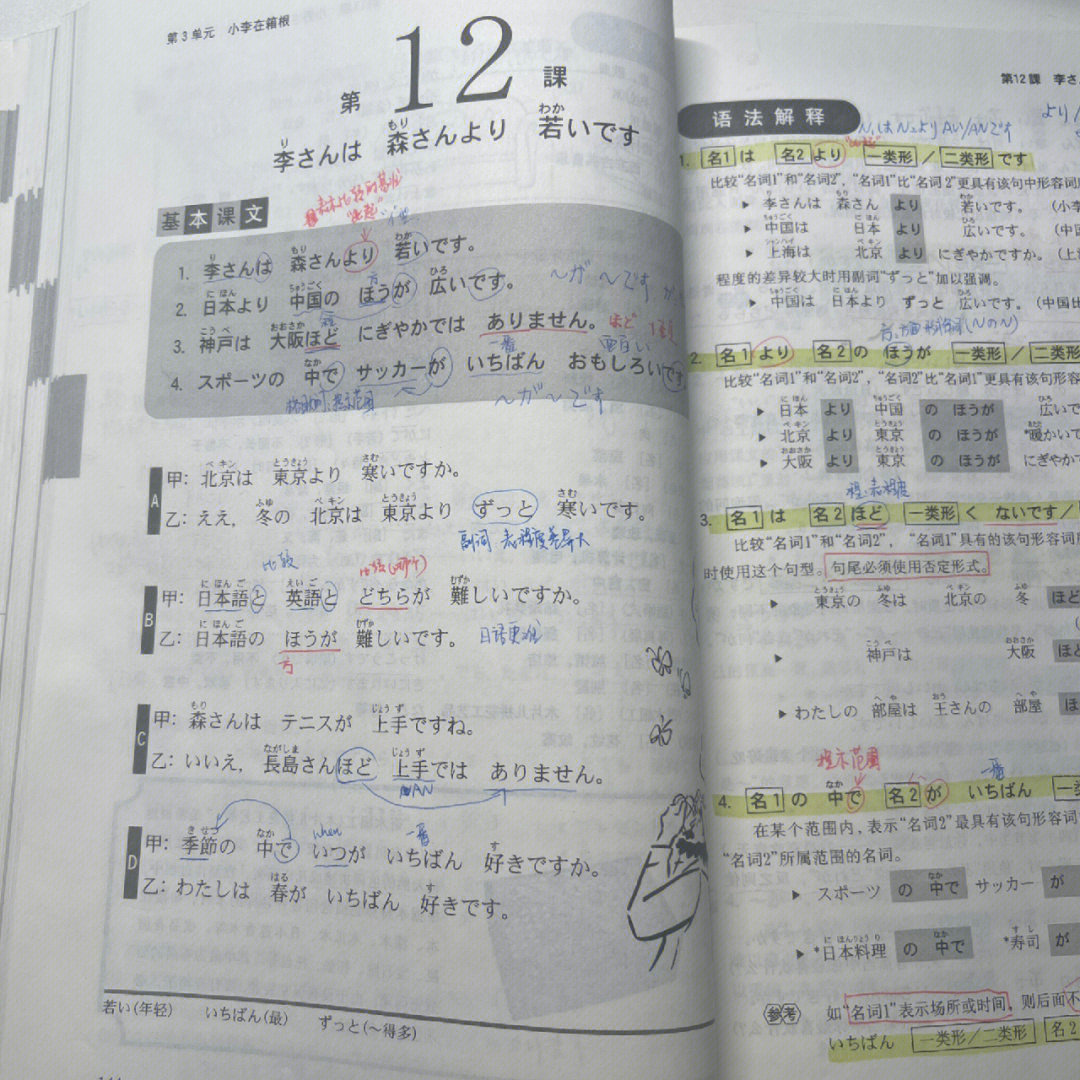 第3单元 小李在箱根
第12課
李さんは 森さんより 若いです
基本课文
1. 李さんは 森さんより 若いです。
2. 日本より 中国の ほうが 広いです。
3. 神戸は 大阪ほど にぎやかでは ありません。
4. スポーツの 中で サッカーが いちばん おもしろいです
～ガ～です
～ガ～です
A
甲：北京は 東京より 寒いですか。
乙：ええ，冬の 北京は 東京より ずっと 寒いです。
副词 表程度差异大
比较
B
甲：日本語と 英語と どちらが 難しいですか。
乙：日本語の ほうが 難しいです。
日语更难
方
C
甲：森さんは テニスが 上手ですね。
乙：いいえ，長島さんほど 上手では ありません。
when
一番
D
甲：季節の 中で いつが いちばん 好きですか。
乙：わたしは 春が いちばん 好きです。
若い(年轻) いちばん(最) ずっと(～得多)
第12課 李さ
语法解释
N₁は N₂より Aい/ANです
より/
1. 名1 は 名2 より 一类形／二类形 です
比较“名词1”和“名词2”，“名词1”比“名词2”更具有该句中形容词
▶ 李さんは 森さん より 若いです。 (小李
▶ 中国は 日本 より 広いです。 (中国
▶ 上海は 北京 より にぎやかですか。 (上
程度的差异较大时用副词“ずっと”加以强调。
▶ 中国は 日本より ずっと 広いです。 (中国比
2. 名1 より 名2 の ほうが 一类形／二类形
比较“名词1”和“名词2”，“名词2”比“名词1”更具有该句形容
▶ 日本 より 中国 の ほうが 広いで
▶ 北京 より 東京 の ほうが *暖かいで
▶ 大阪 より 東京 の ほうが にぎやか
程.表程度
3. 名1 は 名2 ほど 一类形 く ないです／
比较“名词1”和“名词2”，“名词1”具有的该句形容词
时使用这个句型。句尾必须使用否定形式。
▶ 東京の 冬は 北京の 冬 ほど
▶ 神戸は 大阪 ほど
▶ わたしの 部屋は 王さんの 部屋 ほ
提示范围
一番
4. 名1 の 中で 名2 が いちばん 一类
在某个范围内，表示“名词2”最具有该句形容词
“名词2”所属范围的名词。
▶ スポーツ の 中で サッカー が
▶ *日本料理 の 中で *寿司 が
参考 如“名词1”表示场所或时间，则后面不
いちばん 一类形／二类形 名2